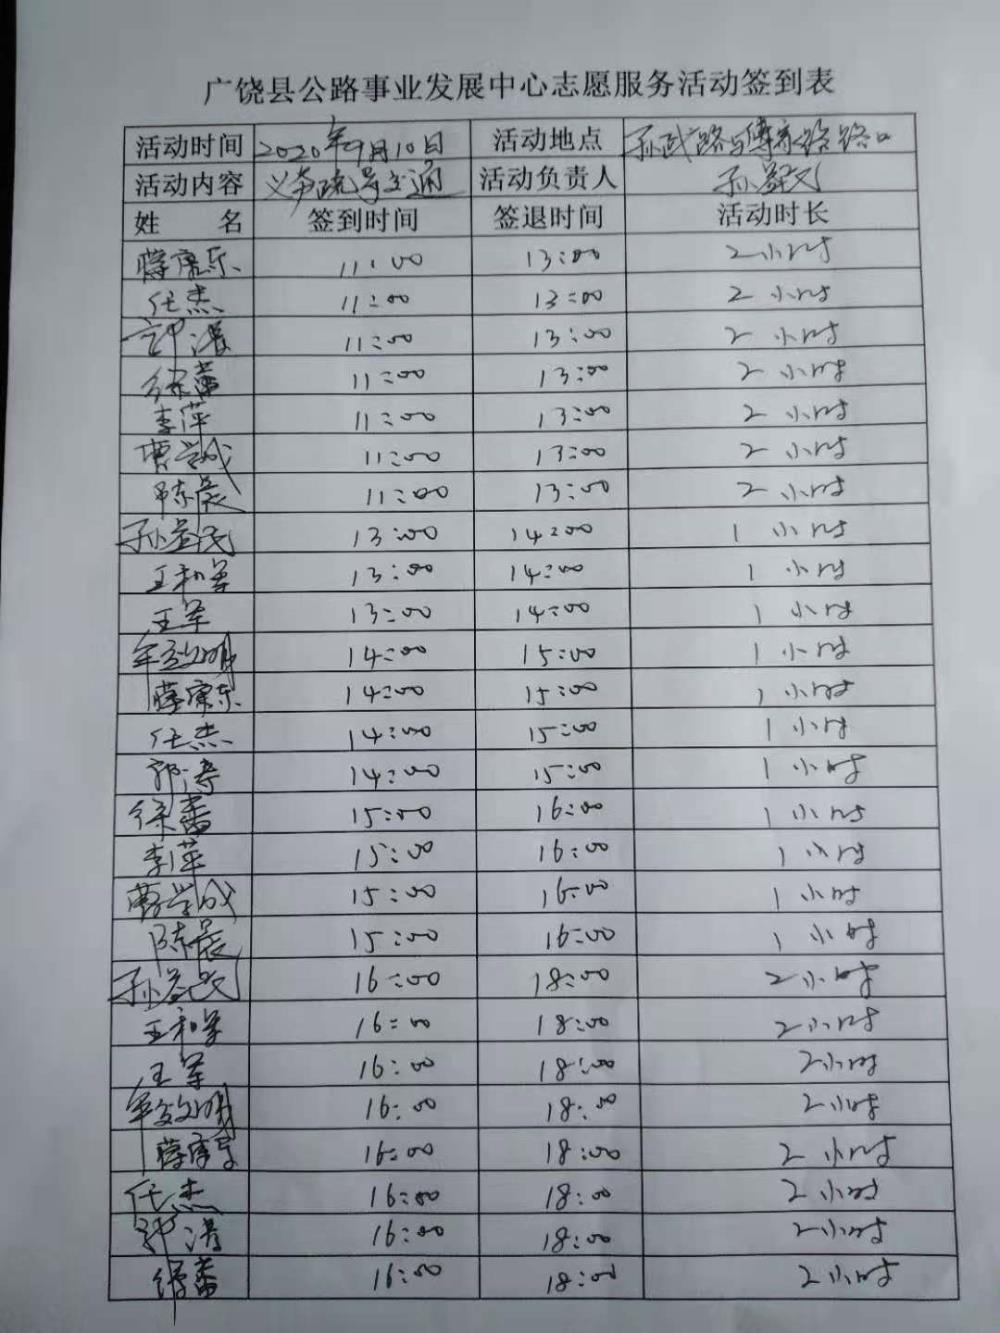 广饶县公路事业发展中心志愿服务活动签到表
活动时间 2020年9月10日 活动地点 孙武路与傅家路路口
活动内容 义务疏导交通 活动负责人 孙益民
姓 名 签到时间 签退时间 活动时长
薛康乐 11:00 13:00 2小时
任杰 11:00 13:00 2小时
郭涛 11:00 13:00 2小时
徐蕾 11:00 13:00 2小时
李萍 11:00 13:00 2小时
曹学成 11:00 13:00 2小时
陈晨 11:00 13:00 2小时
孙益民 13:00 14:00 1小时
王和军 13:00 14:00 1小时
王军 13:00 14:00 1小时
14:00 15:00 1小时
14:00 15:00 1小时
任杰 14:00 15:00 1小时
郭涛 14:00 15:00 1小时
徐蕾 15:00 16:00 1小时
李萍 15:00 16:00 1小时
曹学成 15:00 16:00 1小时
陈晨 15:00 16:00 1小时
孙益民 16:00 18:00 2小时
王和军 16:00 18:00 2小时
王军 16:00 18:00 2小时
16:00 18:00 2小时
16:00 18:00 2小时
任杰 16:00 18:00 2小时
郭涛 16:00 18:00 2小时
徐蕾 16:00 18:00 2小时